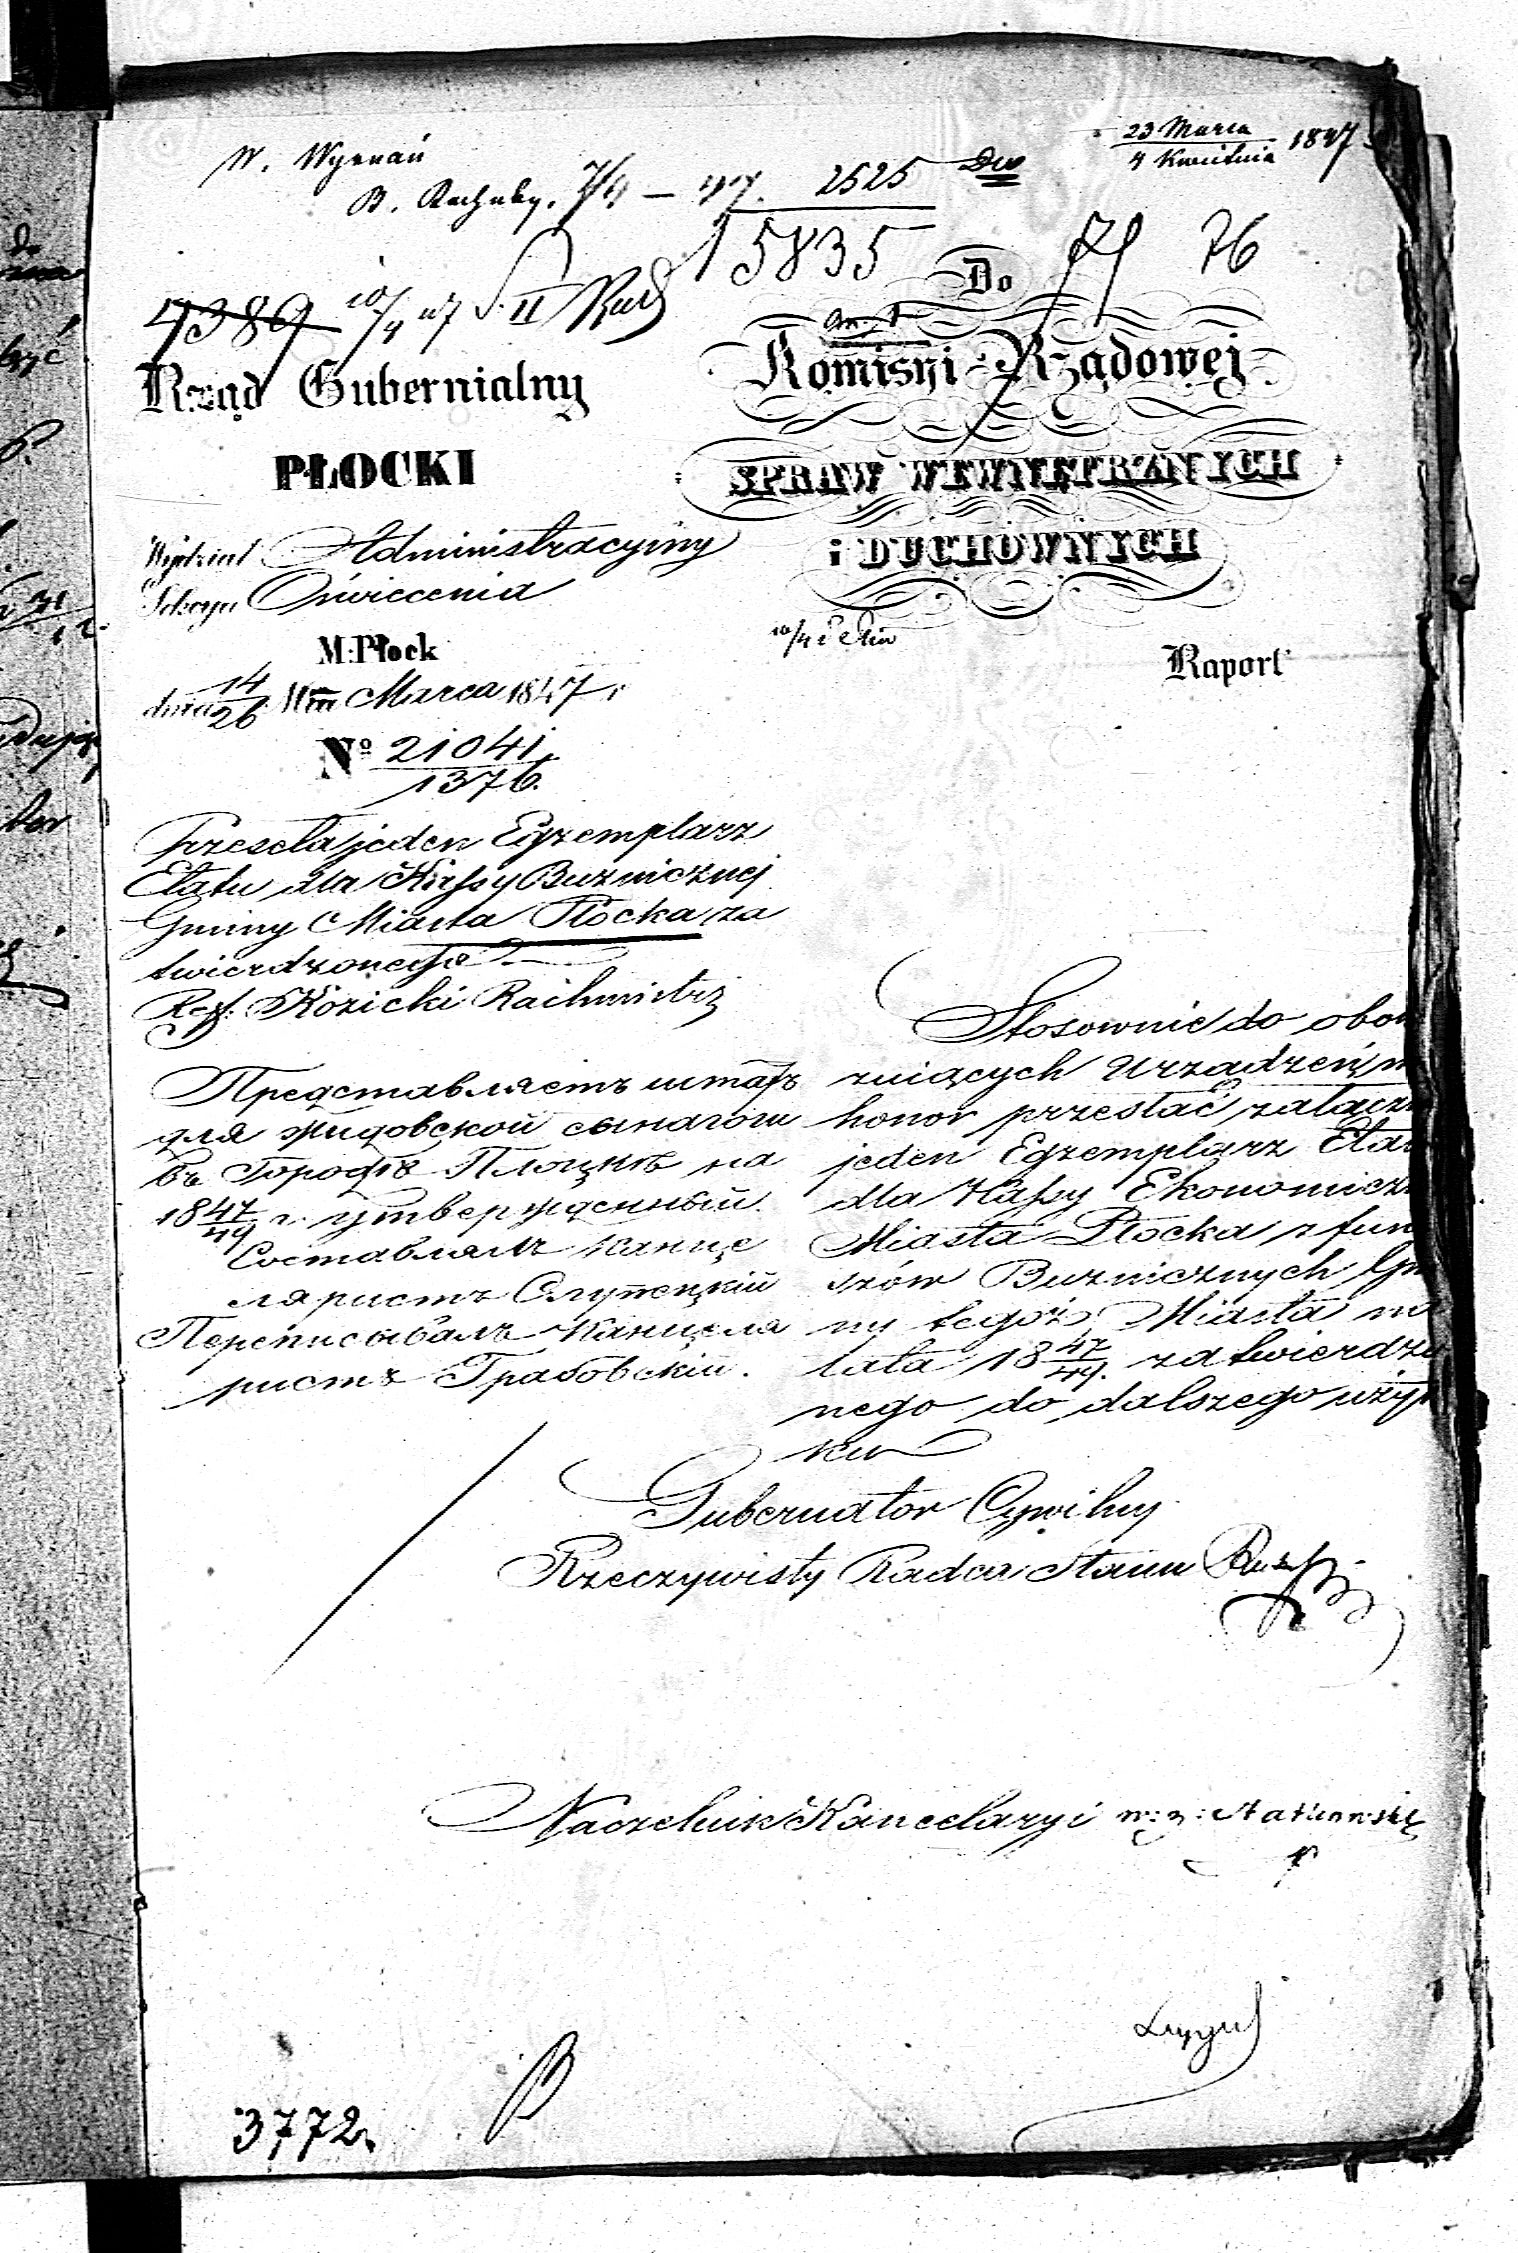 23 Marca
4 Kwietnia 1847
W. Wyznań
2525
B. Rachuby. 7/4 – 47.
15835
76
7389 10/4 47 S. II
Do
Rząd Gubernialny
PŁOCKI
Komisyi Rządowej
SPRAW WEWNĘTRZNYCH
i DUCHOWNYCH
Wydział Administracyiny
Sekcya Oświecenia
M: Płock
dnia 14/26 Marca 1847 r
Raport
Nº 21041
1376.
Przeseła jeden Egzemplarz
Etatu dla Kassy Buzniczney
Gminy Miasta Płocka za
twierdzonego
Ref. Kozicki Rachmistrz
Представляетъ штатъ
для жидовской сынагоги
въ Городѣ Плоцкѣ на
18 47/49 г. утвержденный.
Составлялъ канце
ляристъ Слупецкій
Переписывалъ Канцеля
ристъ Грабовскій.
Stosownie do obow
zuiących Urządzeń m
honor przesłać załącz
jeden Egzemplarz Eta
dla Kassy Ekonomicz
Miasta Płocka z fun
szów Buznicznych Gm
ny tegoż Miasta na
lata 18 47/49. zatwierdzo
nego do dalszego użyt
ku
Gubernator Cywilny
Rzeczywisty Radca Stanu
Naczelnik Kancelaryi
3772.